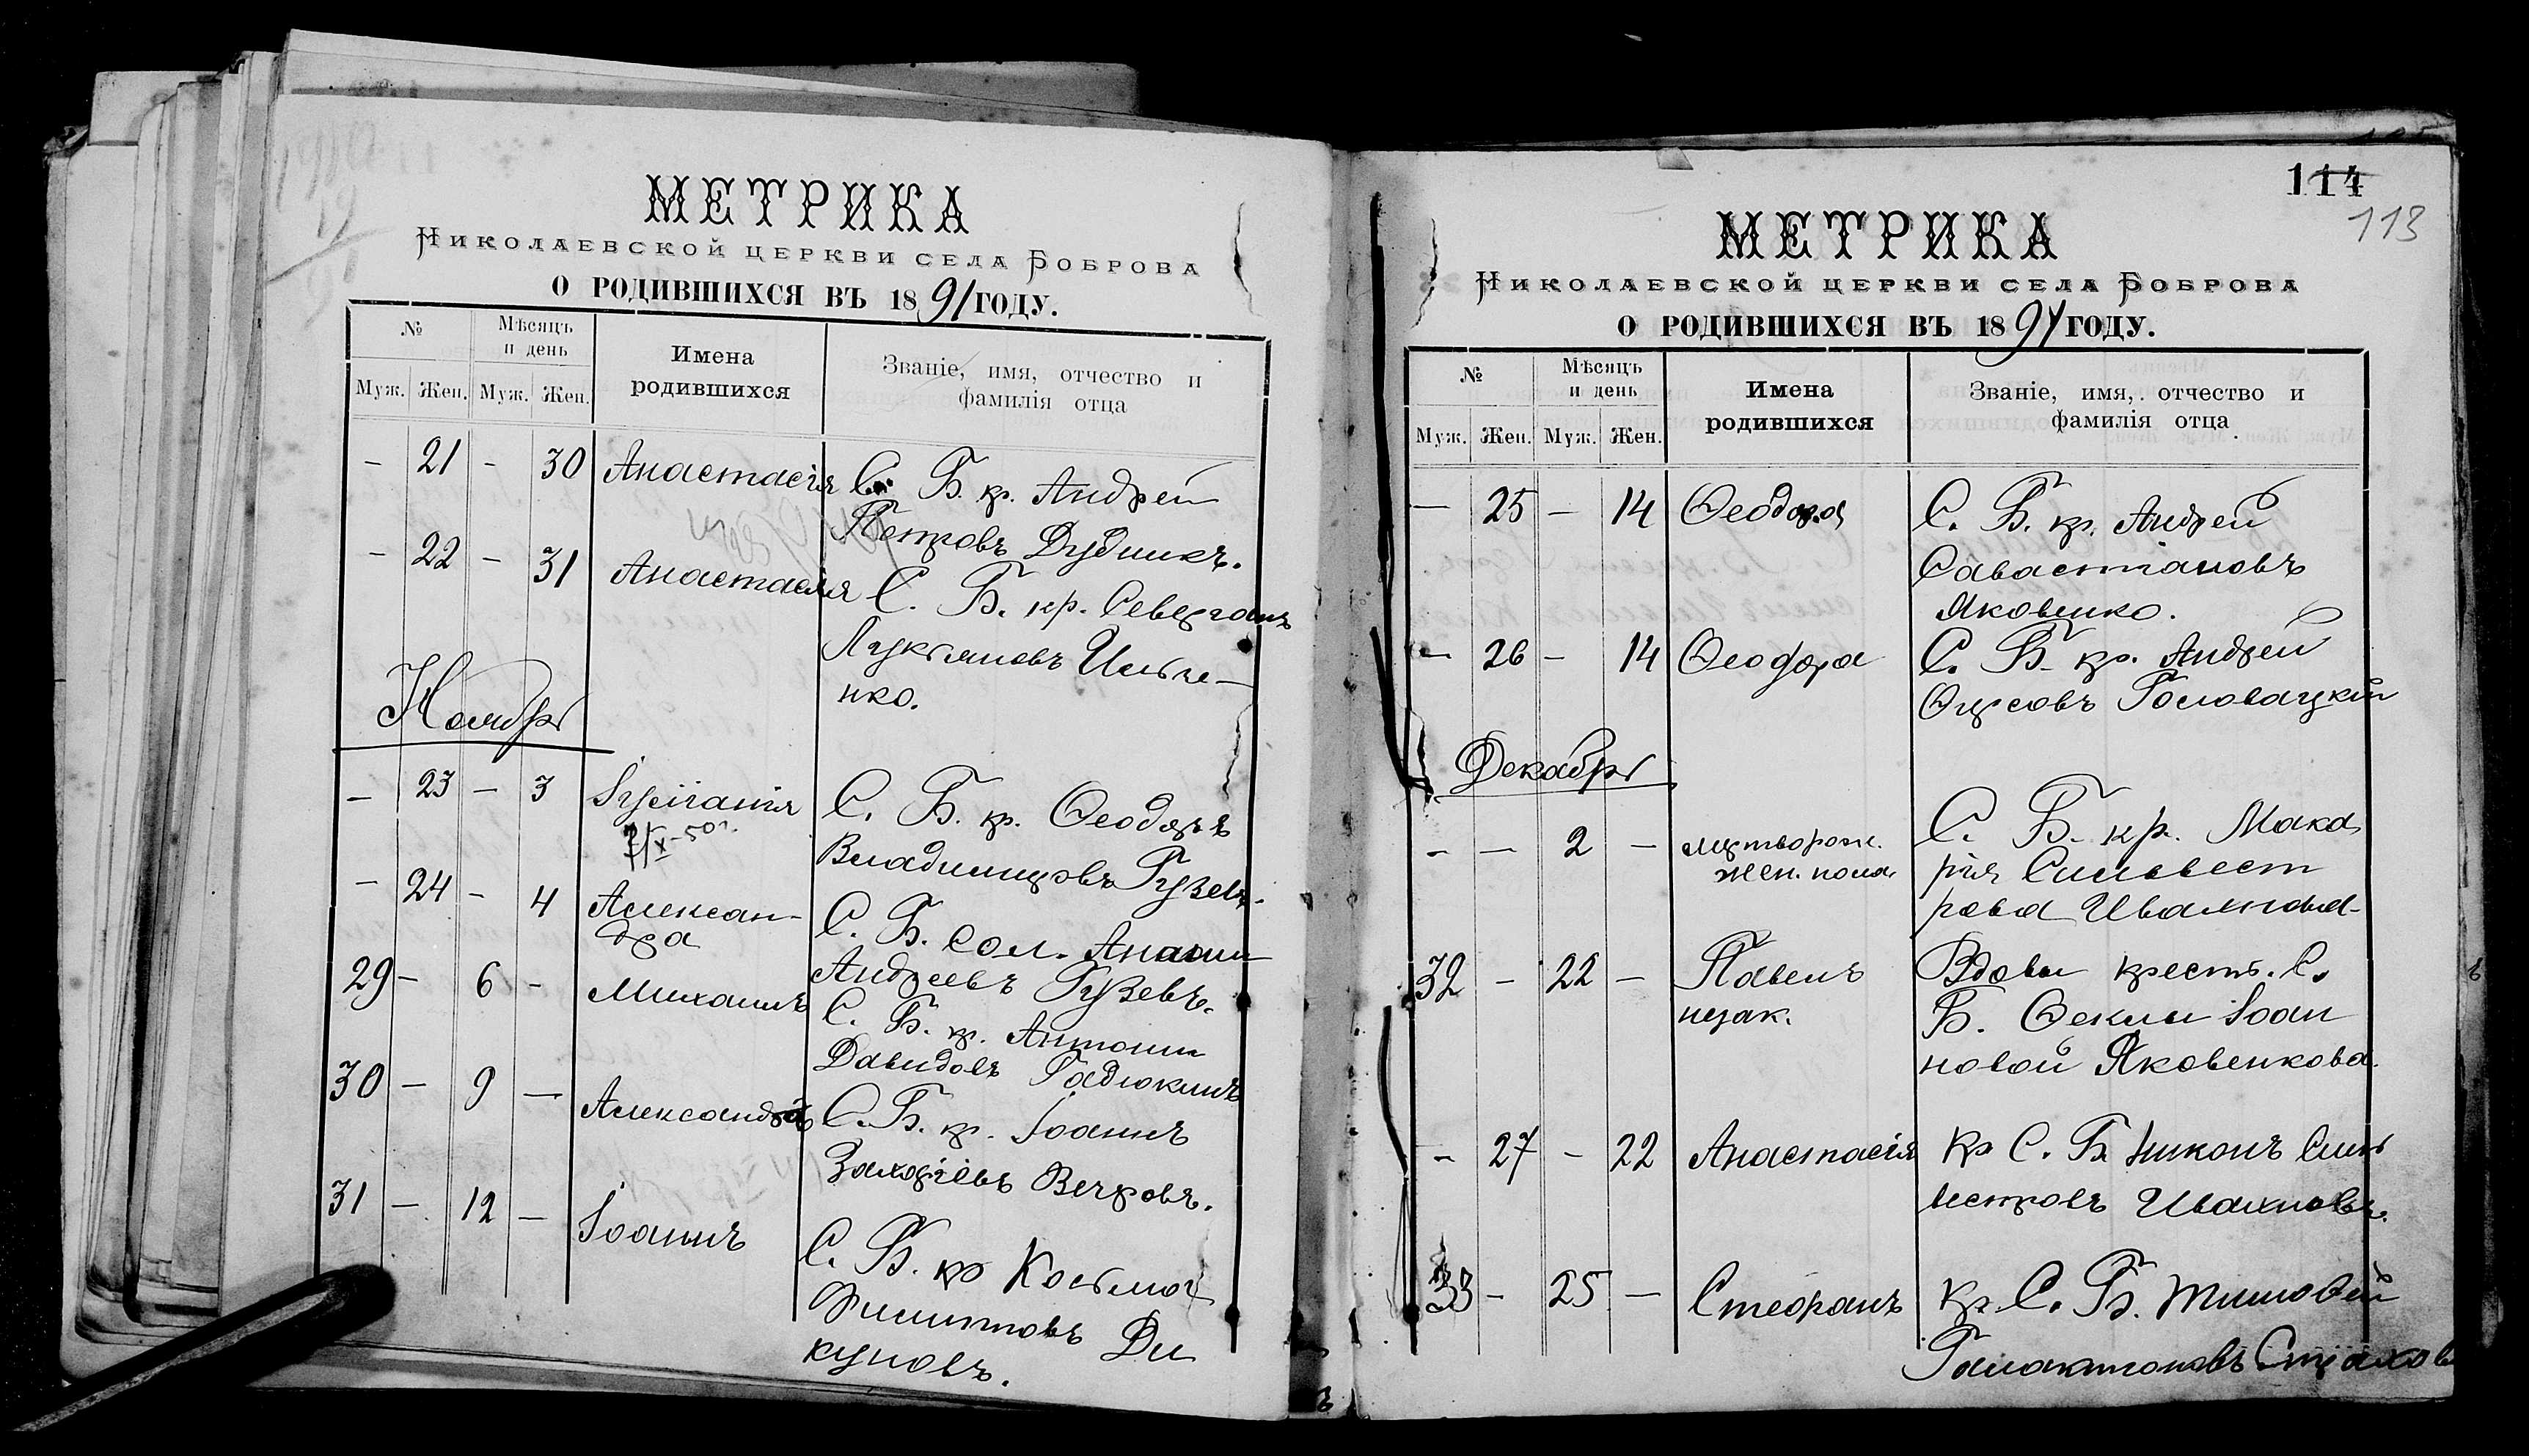 МЕТРИКА
Николаевской церкви села Боброва
О РОДИВШИХСЯ ВЪ 1891 ГОДУ.
№
Мѣсяцъ и день
Имена родившихся
Званіе, имя, отчество и фамилія отца
Муж. Жен. Муж. Жен.
- 21 - 30 Анастасія С. Б. кр. Андрей
Петровъ Дубликъ.
- 22 - 31 Анастасія С. Б. кр. Севергянъ
Лукьяновъ Ильче-
нко.
Ноябрь
- 23 - 3 С. Б. кр. Ѳеодоръ
Владиміровъ Гузевъ.
- 24 - 4 Алексан- С. Б. сол. Анан
дра Андреевъ Гузевъ.
29 - 6 - Михаилъ С. Б. кр. Антоній
Давидовъ Гадюкинъ
30 - 9 - Александръ С. Б. кр. Іоаннъ
Захаріевъ Вечровъ.
31 - 12 - Іоаннъ С. Б. кр Косьма
Филипповъ Ди
куновъ.
114
113
МЕТРИКА
Николаевской церкви села Боброва
О РОДИВШИХСЯ ВЪ 1891 ГОДУ.
№
Мѣсяцъ и день
Имена родившихся
Званіе, имя, отчество и фамилія отца
Муж. Жен. Муж. Жен.
- 25 - 14 Ѳеодора С. Б. кр. Андрей
Савастіановъ
Яковенко.
- 26 - 14 Ѳеодора С. Б. кр. Андрей
Фирсовъ Головацкій
Декабрь
- - 2 - мертворож. С. Б. кр. Мака
жен. пола рія Сильвест
рова Ивахнова
32 - 22 - Павелъ Вдовы крест. С.
незак. Б. Ѳеклы Іоан
новой Яковенкова.
- 27 - 22 Анастасія Кр С. Б. Никонъ Силь
вестровъ Ивахновъ.
33 - 25 - Стефанъ Кр. С. Б. Тимоѳей
Галактіоновъ Страхов